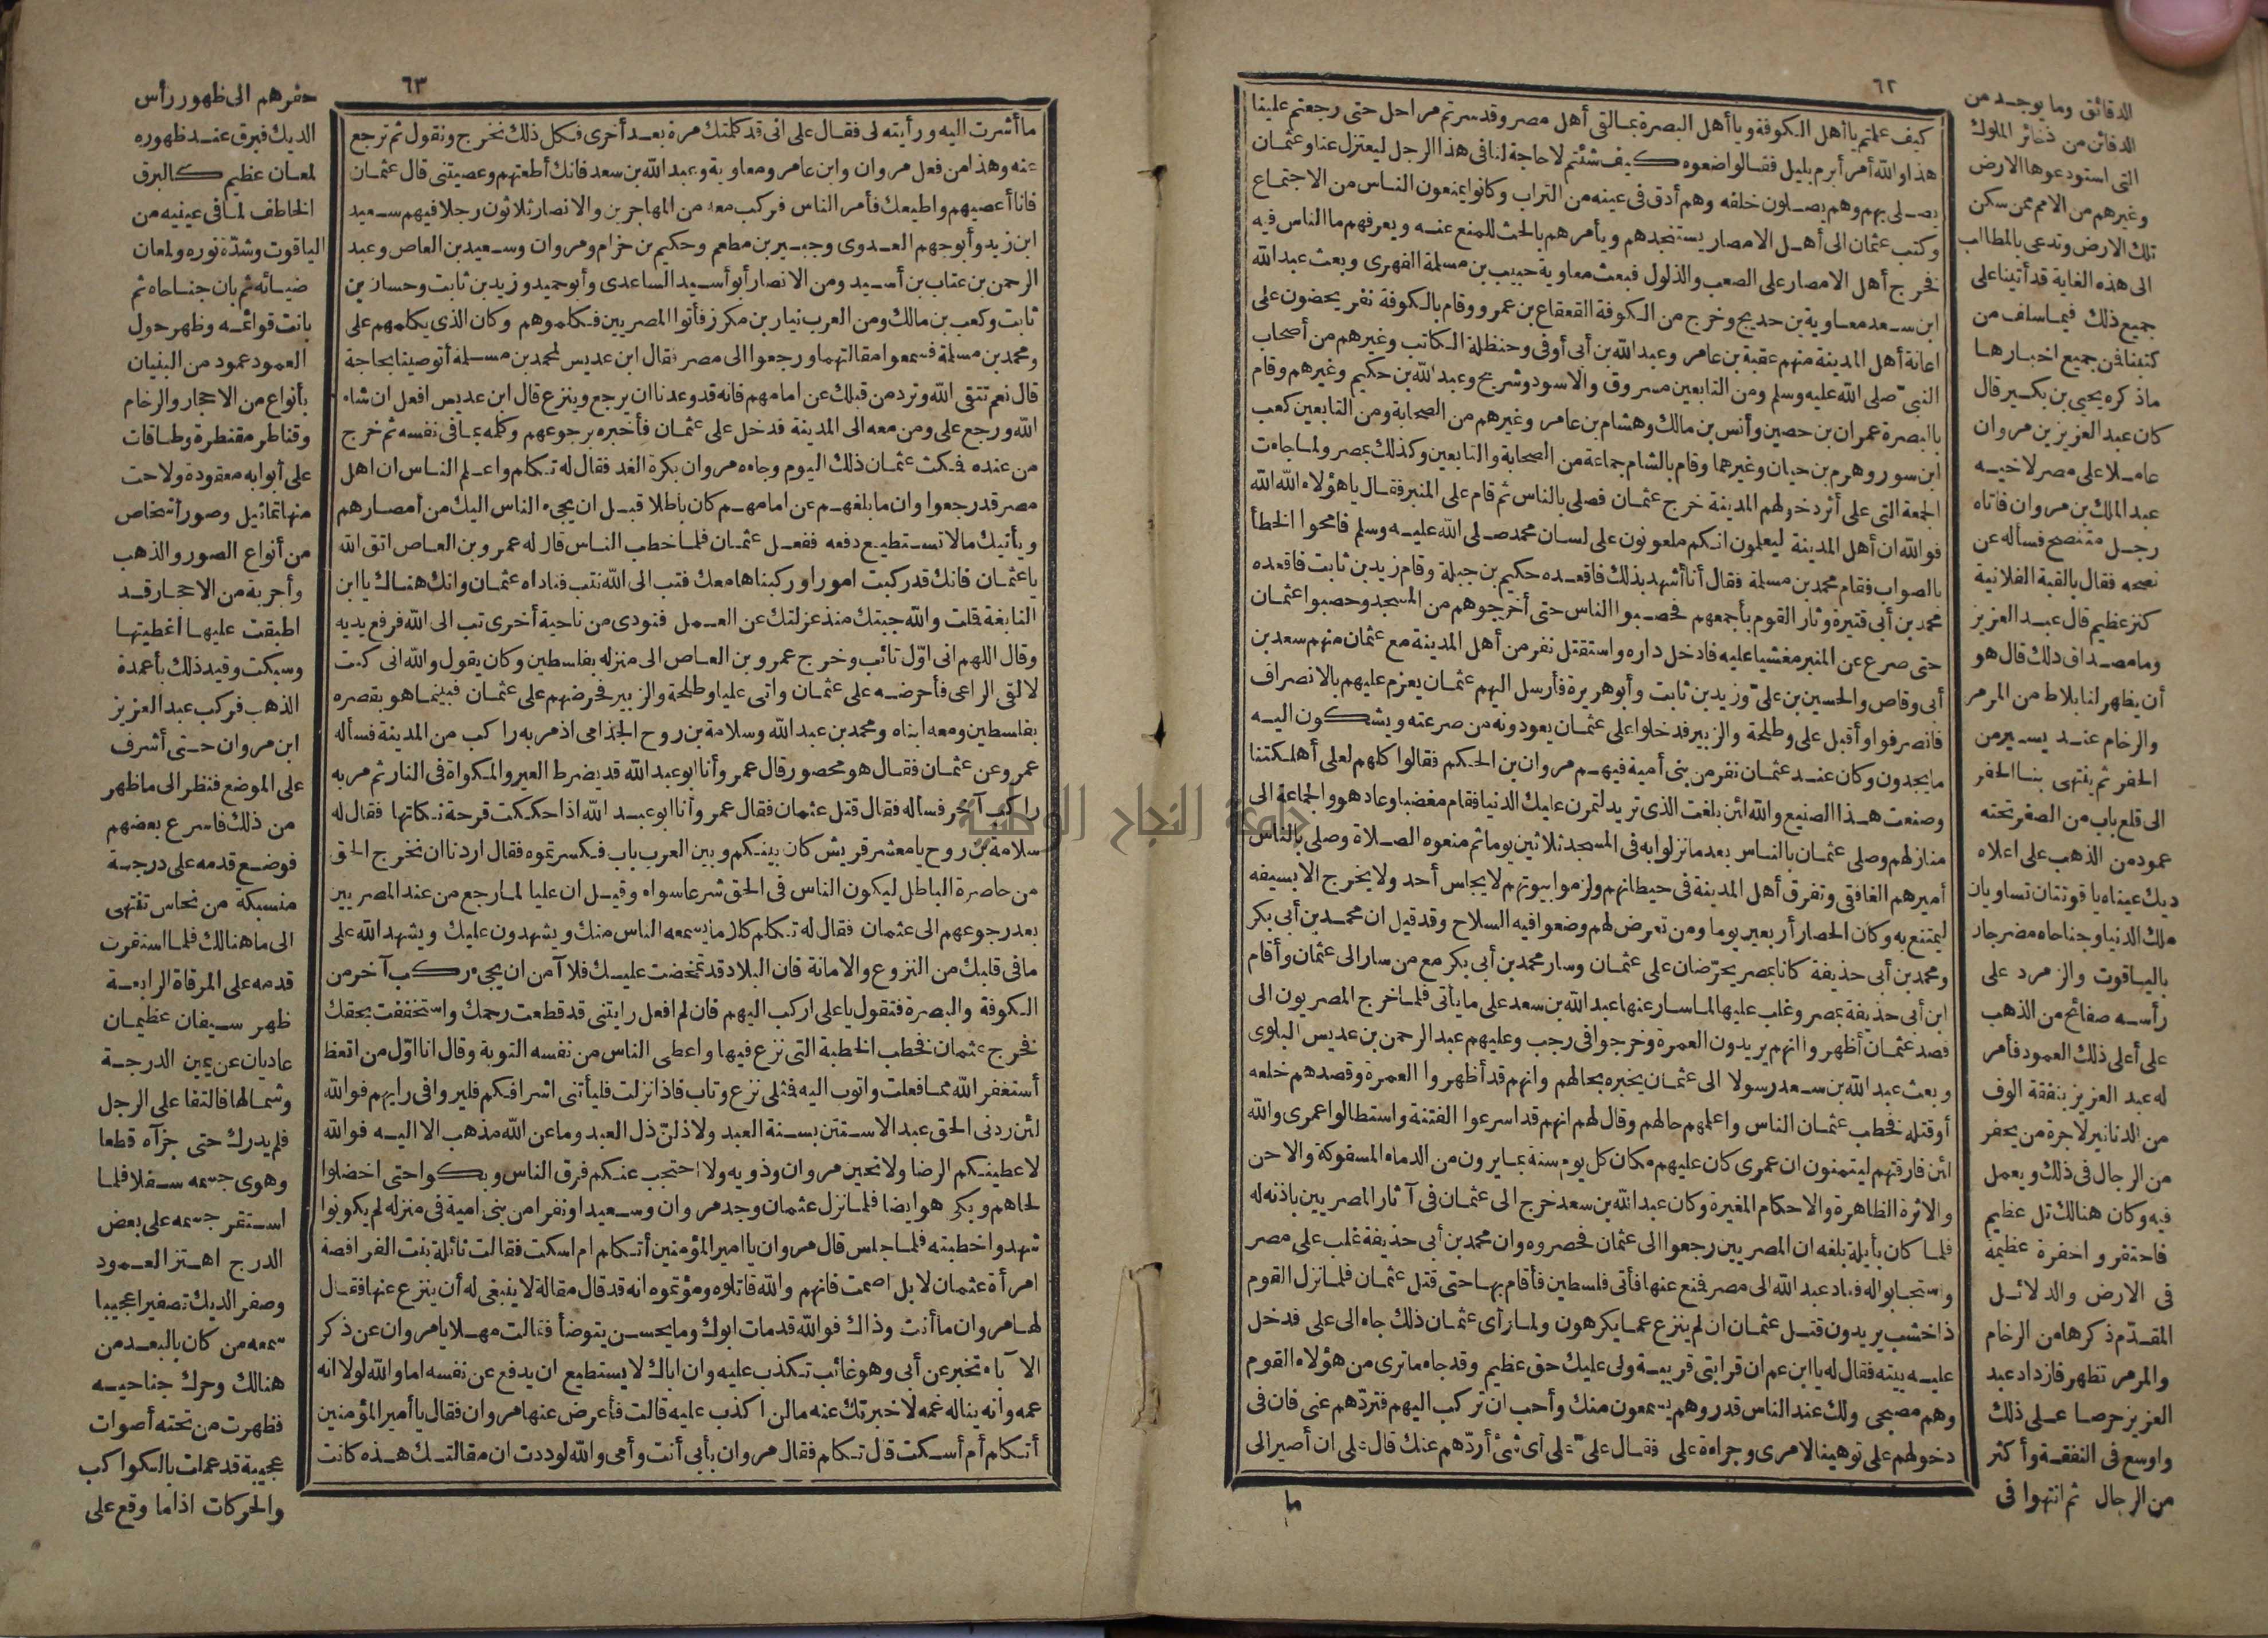 ٦٢
كيف علمتم يا أهل الكوفة ويا أهل البصرة بما لقى أهل مصر وقد سرتم مراحل حتى رجعتم علينا
هذا والله أمر أبرم بليل فقالوا ضعوه كيف شئتم لا حاجة لنا فى هذا الرجل ليعتزل عنا وعثمان
يصلى بهم وهم يصلون خلفه وهم أدق فى عينه من التراب وكانوا يمنعون الناس من الاجتماع
وكتب عثمان الى أهل الامصار يستنجدهم ويأمرهم بالحث للمنع عنه ويعرفهم ما الناس فيه
فخرج أهل الامصار على الصعب والذلول فبعث معاوية حبيب بن مسلمة الفهرى وبعث عبد الله
ابن سعد معاوية بن حديج وخرج من الكوفة القعقاع بن عمرو وقام بالكوفة نفر يحضون على
اعانة أهل المدينة منهم عقبة بن عامر وعبد الله بن أبى أوفى وحنظلة الكاتب وغيرهم من أصحاب
النبىّ صلى الله عليه وسلم ومن التابعين مسروق والاسود وشريح وعبد الله بن حكيم وغيرهم وقام
بالبصرة عمران بن حصين وأنس بن مالك وهشام بن عامر وغيرهم من الصحابة ومن التابعين كعب
ابن سور وهرم بن حيان وغيرهما وقام بالشام جماعة من الصحابة والتابعين وكذلك بمصر ولما جاءت
الجمعة التى على أثر دخولهم المدينة خرج عثمان فصلى بالناس ثم قام على المنبر فقال يا هؤلاء الله الله
فو الله ان أهل المدينة ليعلمون انكم ملعونون على لسان محمد صلى الله عليه وسلم فامحوا الخطأ
بالصواب فقام محمد بن مسلمة فقال أنا أشهد بذلك فاقعده حكيم بن جبلة وقام زيد بن ثابت فاقعده
محمد بن أبى قتيرة وثار القوم بأجمعهم فحصبوا الناس حتى أخرجوهم من المسجد وحصبوا عثمان
حتى صرع عن المنبر مغشيا عليه فادخل داره واستقتل نفر من أهل المدينة مع عثمان منهم سعد بن
أبى وقاص والحسين بن علىّ وزيد بن ثابت وأبو هريرة فأرسل اليهم عثمان يعزم عليهم بالانصراف
فانصرفوا وأقبل على وطلحة والزبير فدخلوا على عثمان يعودونه من صرعته ويشكون اليه
ما يجدون وكان عند عثمان نفر من بنى أمية فيهم مروان بن الحكم فقالوا كلهم لعلى أهلكتنا
وصنعت هذا الصنيع والله لئن بلغت الذى تريد لتمرن عليك الدنيا فقام مغضبا وعاد هو والجماعة الى
منازلهم وصلى عثمان بالناس بعد ما نزلوا به فى المسجد ثلاثين يوما ثم منعوه الصلاة وصلى بالناس
أميرهم الغافقى وتفرق أهل المدينة فى حيطانهم ولزموا بيوتهم لا يجلس أحد ولا يخرج الا بسيفه
ليمتنع به وكان الحصار أربعين يوما ومن تعرض لهم وضعوا فيه السلاح وقد قيل ان محمد بن أبى بكر
ومحمد بن أبى حذيفة كانا بمصر يحرّضان على عثمان وسار محمد بن أبى بكر مع من سار الى عثمان وأقام
ابن أبى حذيفة بمصر وغلب عليها لما سار عنها عبد الله بن سعد على ما يأتى فلما خرج المصريون الى
قصد عثمان أظهروا انهم يريدون العمرة وخرجوا فى رجب وعليهم عبد الرحمن بن عديس البلوى
وبعث عبد الله بن سعد رسولا الى عثمان يخبره بحالهم وانهم قد أظهروا العمرة وقصدهم خلعه
أو قتله فخطب عثمان الناس واعلمهم حالهم وقال لهم انهم قد اسرعوا الفتنة واستطالوا عمرى والله
لئن فارقتهم ليتمنون ان عمرى كان عليهم مكان كل يوم سنة بما يرون من الدماء المسفوكة والاحن
والاثرة الظاهرة والاحكام المغيرة وكان عبد الله بن سعد خرج الى عثمان فى آثار المصريين باذنه له
فلما كان بأيلة بلغه ان المصريين رجعوا الى عثمان فحصروه وان محمد بن أبى حذيفة غلب على مصر
واستجابوا له فعاد عبد الله الى مصر فمنع عنها فأتى فلسطين فأقام بها حتى قتل عثمان فلما نزل القوم
ذا خشب يريدون قتل عثمان ان لم ينزع عما يكرهون ولما رأى عثمان ذلك جاء الى على فدخل
عليه بيته فقال له يا ابن عم ان قرابتى قريبة ولى عليك حق عظيم وقد جاء ما ترى من هؤلاء القوم
وهم مصبحى ولك عند الناس قدر وهم يسمعون منك وأحب ان تركب اليهم فتردّهم عنى فان فى
دخولهم على توهينا لامرى وجراءة على فقال علىّ على أى شئ أردّهم عنك قال على ان أصير الى
ما
الدقائق وما يوجد من
الدفائن من ذخائر الملوك
التى استودعوها الارض
وغيرهم من الامم ممن سكن
تلك الارض وتدعى بالمطالب
الى هذه الغاية قد أتينا على
جميع ذلك فيما سلف من
كتبنا فمن جميع اخبارها
ما ذكره يحيى بن بكير قال
كان عبد العزيز بن مروان
عاملا على مصر لاخيه
عبد الملك بن مروان فاتاه
رجل متنصح فسأله عن
نصحه فقال بالقبة الفلانية
كنز عظيم قال عبد العزيز
وما مصداق ذلك قال هو
أن يظهر لنا بلاط من المرمر
والرخام عند يسير من
الحفر ثم ينتهى بنا الحفر
الى قلع باب من الصفر تحته
عمود من الذهب على اعلاه
ديك عيناه ياقوتتان تساويان
ملك الدنيا وجناحاه مضرجان
بالياقوت والزمرد على
رأسه صفائح من الذهب
على أعلى ذلك العمود فأمر
له عبد العزيز بنفقة الوف
من الدنانير لاجرة من يحفر
من الرجال فى ذلك ويعمل
فيه وكان هنالك تل عظيم
فاحتفروا حفرة عظيمة
فى الارض والدلائل
المقدّم ذكرها من الرخام
والمرمر تظهر فازداد عبد
العزيز حرصا على ذلك
واوسع فى النفقة وأكثر
من الرجال ثم انتهوا فى
٦٣
ما أشرت اليه ورأيته لى فقال على انى قد كلمتك مرة بعد أخرى فكل ذلك نخرج ونقول ثم ترجع
عنه وهذا من فعل مروان وابن عامر ومعاوية وعبد الله بن سعد فانك أطعتهم وعصيتنى قال عثمان
فانا أعصيهم واطيعك فأمر الناس فركب معه من المهاجرين والانصار ثلاثون رجلا فيهم سعيد
ابن زيد وأبو جهم العدوى وجبير بن مطعم وحكيم بن حزام ومروان وسعيد بن العاص وعبد
الرحمن بن عتاب بن أسيد ومن الانصار أبو أسيد الساعدى وأبو حميد وزيد بن ثابت وحسان بن
ثابت وكعب بن مالك ومن العرب نيار بن مكرز فأتوا المصريين فكلموهم وكان الذى يكلمهم على
ومحمد بن مسلمة فسمعوا مقالتهما ورجعوا الى مصر فقال ابن عديس لمحمد بن مسلمة أتوصينا بحاجة
قال نعم تتقى الله وترد من قبلك عن امامهم فانه قد وعدنا ان يرجع وينزع قال ابن عديس افعل ان شاء
الله ورجع على ومن معه الى المدينة فدخل على عثمان فأخبره برجوعهم وكلمه بما فى نفسه ثم خرج
من عنده فمكث عثمان ذلك اليوم وجاءه مروان بكرة الغد فقال له تكلم واعلم الناس ان اهل
مصر قد رجعوا وان ما بلغهم عن امامهم كان باطلا قبل ان يجىء الناس اليك من أمصارهم
ويأتيك ما لا تستطيع دفعه ففعل عثمان فلما خطب الناس قال له عمرو بن العاص اتق الله
يا عثمان فانك قد ركبت امورا وركبناها معك فتب الى الله نتب فناداه عثمان وانك هناك يا ابن
النابغة قلت والله جبتك منذ عزلتك عن العمل فنودى من ناحية أخرى تب الى الله فرفع يديه
وقال اللهم انى اوّل تائب وخرج عمرو بن العاص الى منزله بفلسطين وكان يقول والله انى كنت
لالقى الراعى فأحرضه على عثمان واتى عليا وطلحة والزبير فحرضهم على عثمان فبينما هو بقصره
بفلسطين ومعه ابناه ومحمد بن عبد الله وسلامة بن روح الجذامى اذ مر به راكب من المدينة فسأله
عمرو عن عثمان فقال هو محصور قال عمرو أنا ابو عبد الله قد يضرط العير والمكواة فى النار ثم مر به
راكب آخر فسأله فقال قتل عثمان فقال عمرو أنا ابو عبد الله اذا حككت قرحة نكأتها فقال له
سلامة بن روح يا معشر قريش كان بينكم وبين العرب باب فكسرتموه فقال اردنا ان نخرج الحق
من حاصرة الباطل ليكون الناس فى الحق شرعا سواء وقيل ان عليا لما رجع من عند المصريين
بعد رجوعهم الى عثمان فقال له تكلم كلاما يسمعه الناس منك ويشهدون عليك ويشهد الله على
ما فى قلبك من النزوع والامانة فان البلاد قد تمخضت عليك فلا آمن ان يجىء ركب آخر من
الكوفة والبصرة فتقول يا على اركب اليهم فان لم افعل رأيتنى قد قطعت رحمك واستخففت بحقك
فخرج عثمان فخطب الخطبة التى نزع فيها واعطى الناس من نفسه التوبة وقال انا اوّل من اتعظ
أستغفر الله مما فعلت واتوب اليه فمثلى نزع وتاب فاذا نزلت فليأتنى اشرافكم فليروا فى رأيهم فوالله
لئن ردنى الحق عبدا لاستنن بسنة العبد ولاذلنّ ذل العبد وما عن الله مذهب الا اليه فو الله
لاعطينكم الرضا ولانحين مروان وذويه ولا احتجب عنكم فرق الناس وبكوا حتى اخضلوا
لحاهم وبكى هو ايضا فلما نزل عثمان وجد مروان وسعيدا ونفرا من بنى امية فى منزله لم يكونوا
شهدوا خطبته فلما جلس قال مروان يا امير المؤمنين أتكلم ام اسكت فقالت نائلة بنت الفرافصة
امرأة عثمان لا بل اصمت فانهم والله قاتلوه ومؤتموه انه قد قال مقالة لا ينبغى له أن ينزع عنها فقال
لها مروان ما أنت وذاك فو الله قد مات ابوك وما يحسن يتوضأ فقالت مهلا يا مروان عن ذكر
الآباء تخبر عن أبى وهو غائب تكذب عليه وان اباك لا يستطيع ان يدفع عن نفسه اما والله لولا انه
عمه وانه يناله غمه لاخبرتك عنه ما لن اكذب عليه قالت فأعرض عنها مروان فقال يا أمير المؤمنين
أتكلم أم أسكت قال تكلم فقال مروان بأبى أنت وأمى والله لوددت ان مقالتك هذه كانت
حفرهم الى ظهور رأس
الديك فبرق عند ظهوره
لمعان عظيم كالبرق
الخاطف لما فى عينيه من
الياقوت وشدّة نوره ولمعان
ضيائه ثم بان جناحاه ثم
بانت قوائمه وظهر حول
العمود عمود من البنيان
بأنواع من الاحجار والرخام
وقناطر مقنطرة وطاقات
على أبوابه معقودة ولاحت
منها تماثيل وصور أشخاص
من أنواع الصور والذهب
وأجربة من الاحجار قد
اطبقت عليها أغطيتها
وسبكت وقيد ذلك بأعمدة
الذهب فركب عبد العزيز
ابن مروان حتى أشرف
على الموضع فنظر الى ما ظهر
من ذلك فاسرع بعضهم
فوضع قدمه على درجة
منسبكة من نحاس تنتهى
الى ما هنالك فلما استقرت
قدمه على المرقاة الرابعة
ظهر سيفان عظيمان
عاديان عن يمين الدرجة
وشمالها فالتقا على الرجل
فلم يدرك حتى جزآه قطعا
وهوى جسمه سفلا فلما
استقر جسمه على بعض
الدرج اهتز العمود
وصفر الديك تصفيرا عجيبا
سمعه من كان بالبعد من
هنالك وحرك جناحيه
فظهرت من تحته أصوات
عجيبة قد عملت بالكواكب
والحركات اذا ما وقع على
جامعة النجاح الوطنية